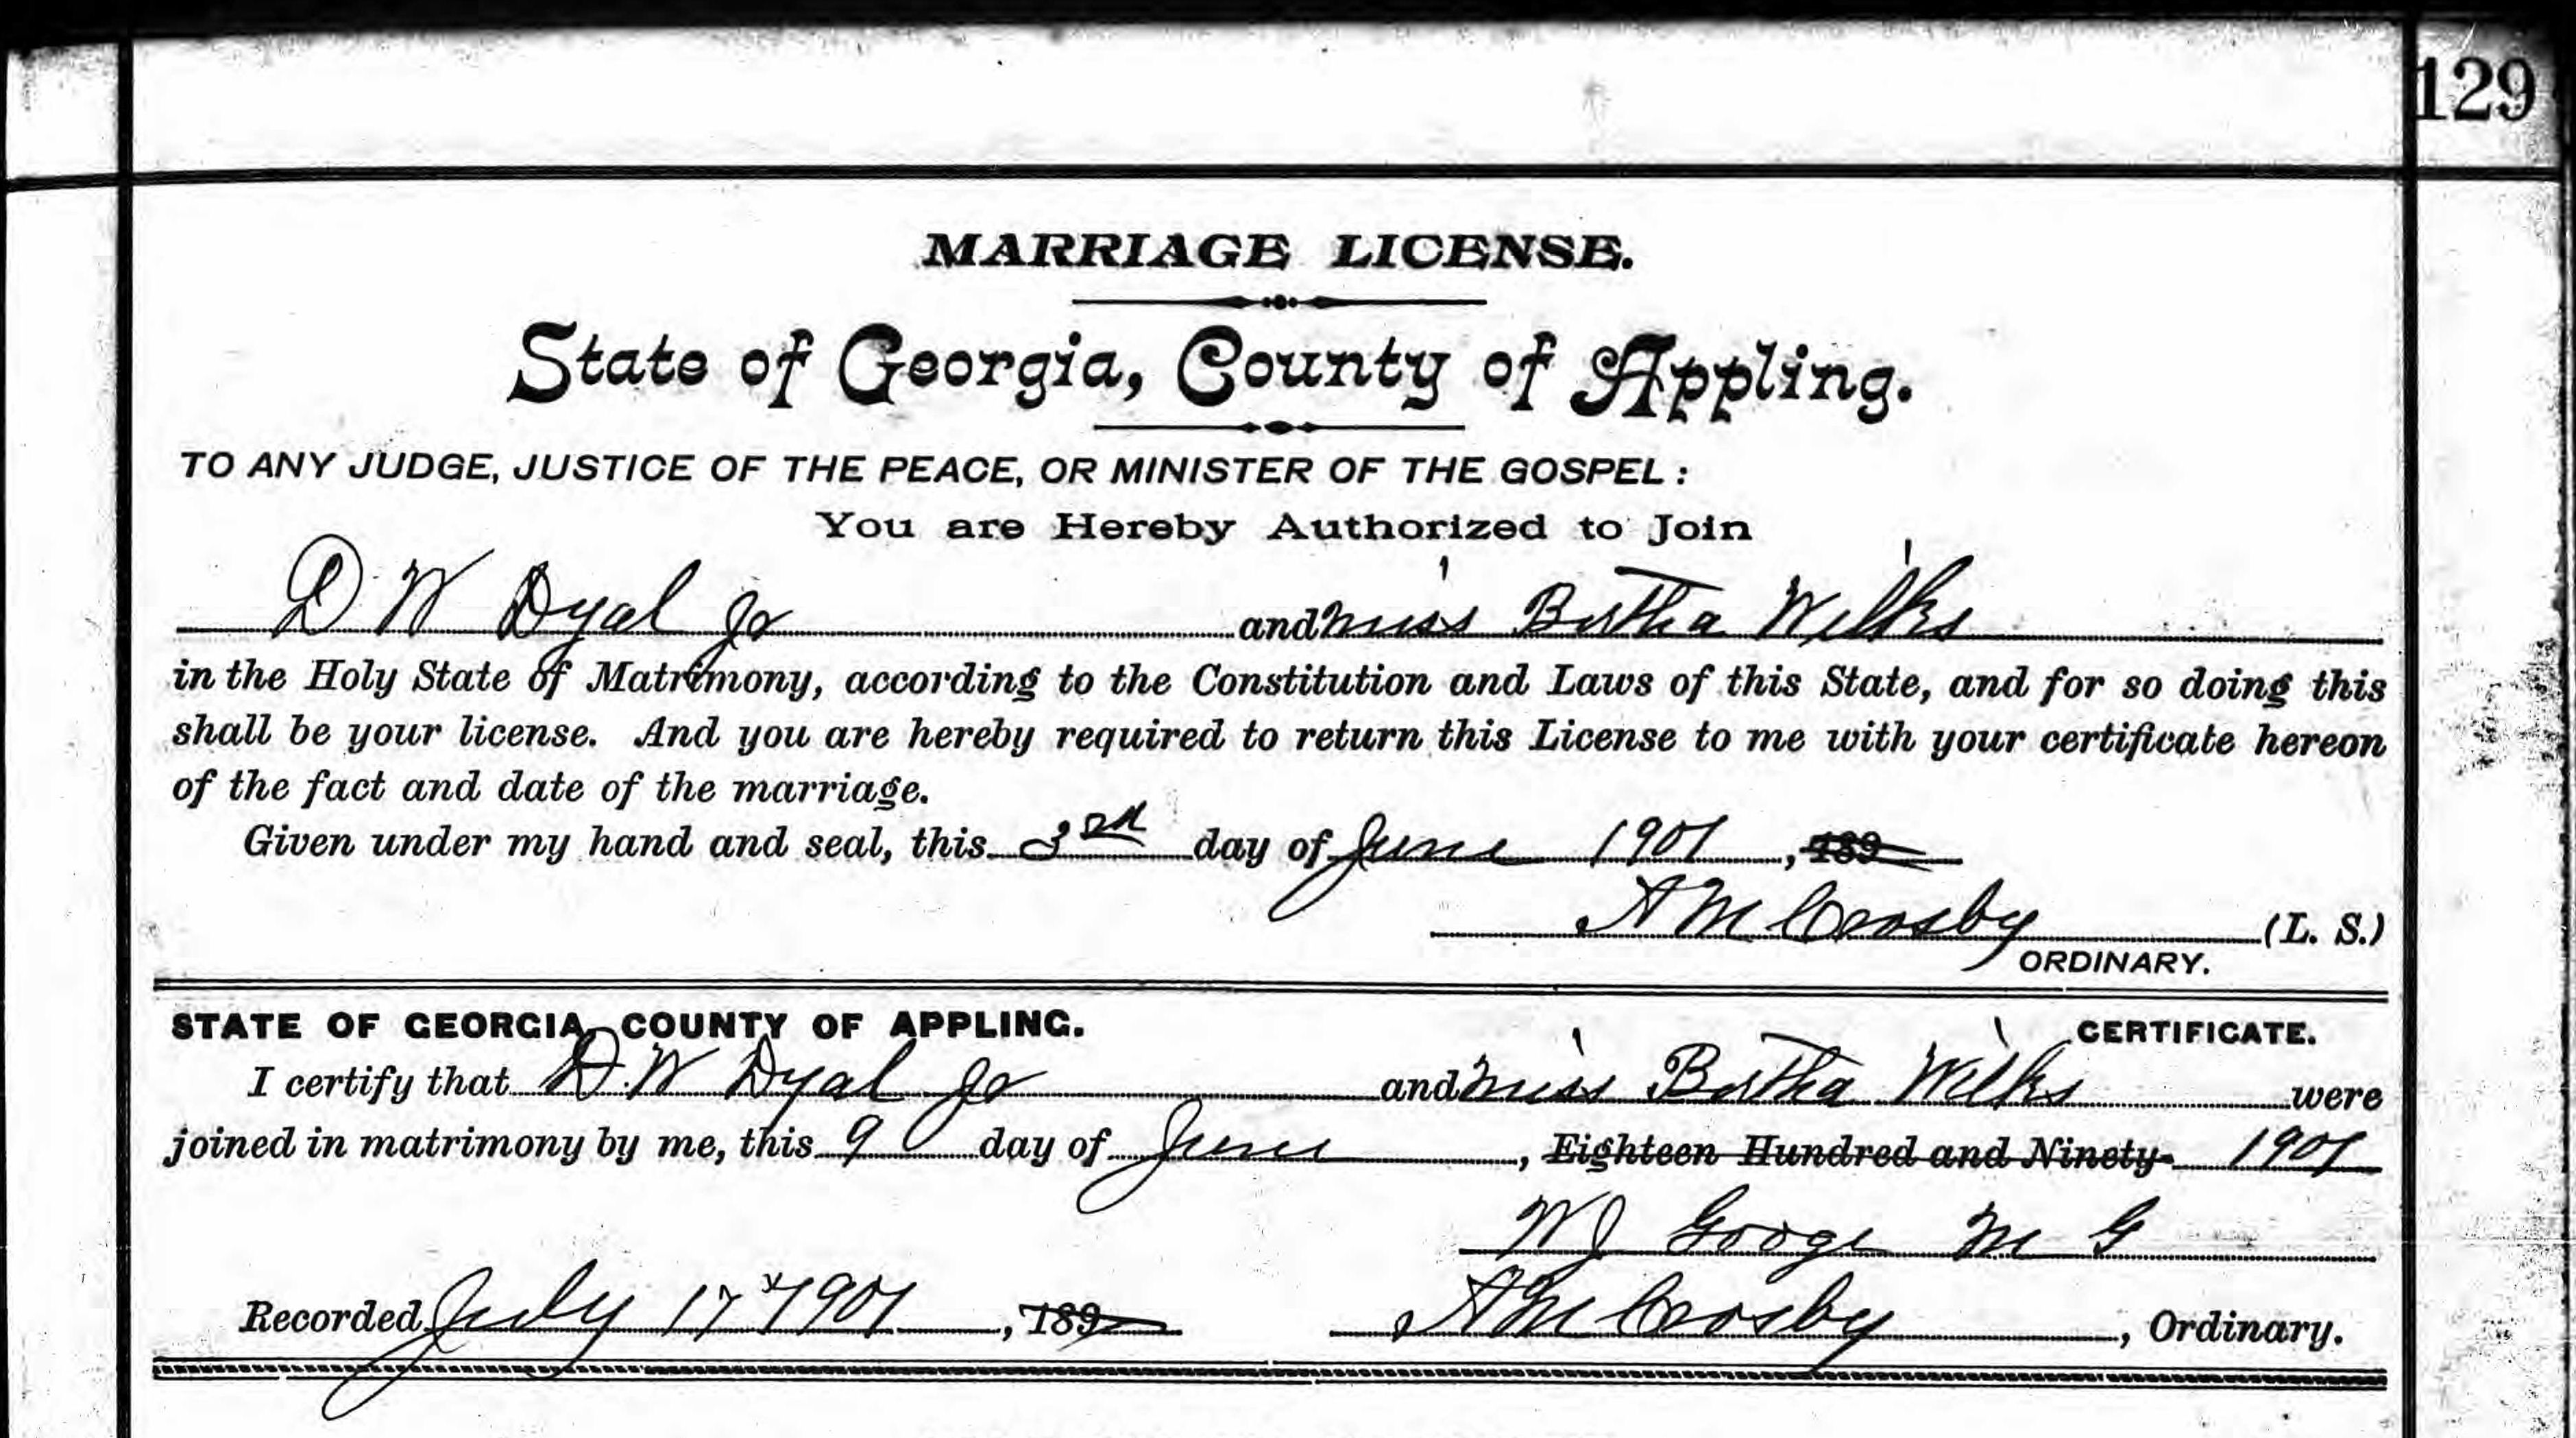 129
MARRIAGE LICENSE.
State of Georgia, County of Appling.
TO ANY JUDGE, JUSTICE OF THE PEACE, OR MINISTER OF THE GOSPEL:
You are Hereby Authorized to Join
D W Dyal Jr and Miss Bertha Wilks
in the Holy State of Matrimony, according to the Constitution and Laws of this State, and for so doing this
shall be your license. And you are hereby required to return this License to me with your certificate hereon
of the fact and date of the marriage.
Given under my hand and seal, this 3rd day of June 1901, 189
A M Crosby (L. S.)
ORDINARY.
STATE OF GEORGIA, COUNTY OF APPLING. CERTIFICATE.
I certify that D. W Dyal Jr and Miss Bertha Wilks were
joined in matrimony by me, this 9 day of June, Eighteen Hundred and Ninety- 1901
W J Googe M G
Recorded July 17 1901, 189 A M Crosby, Ordinary.